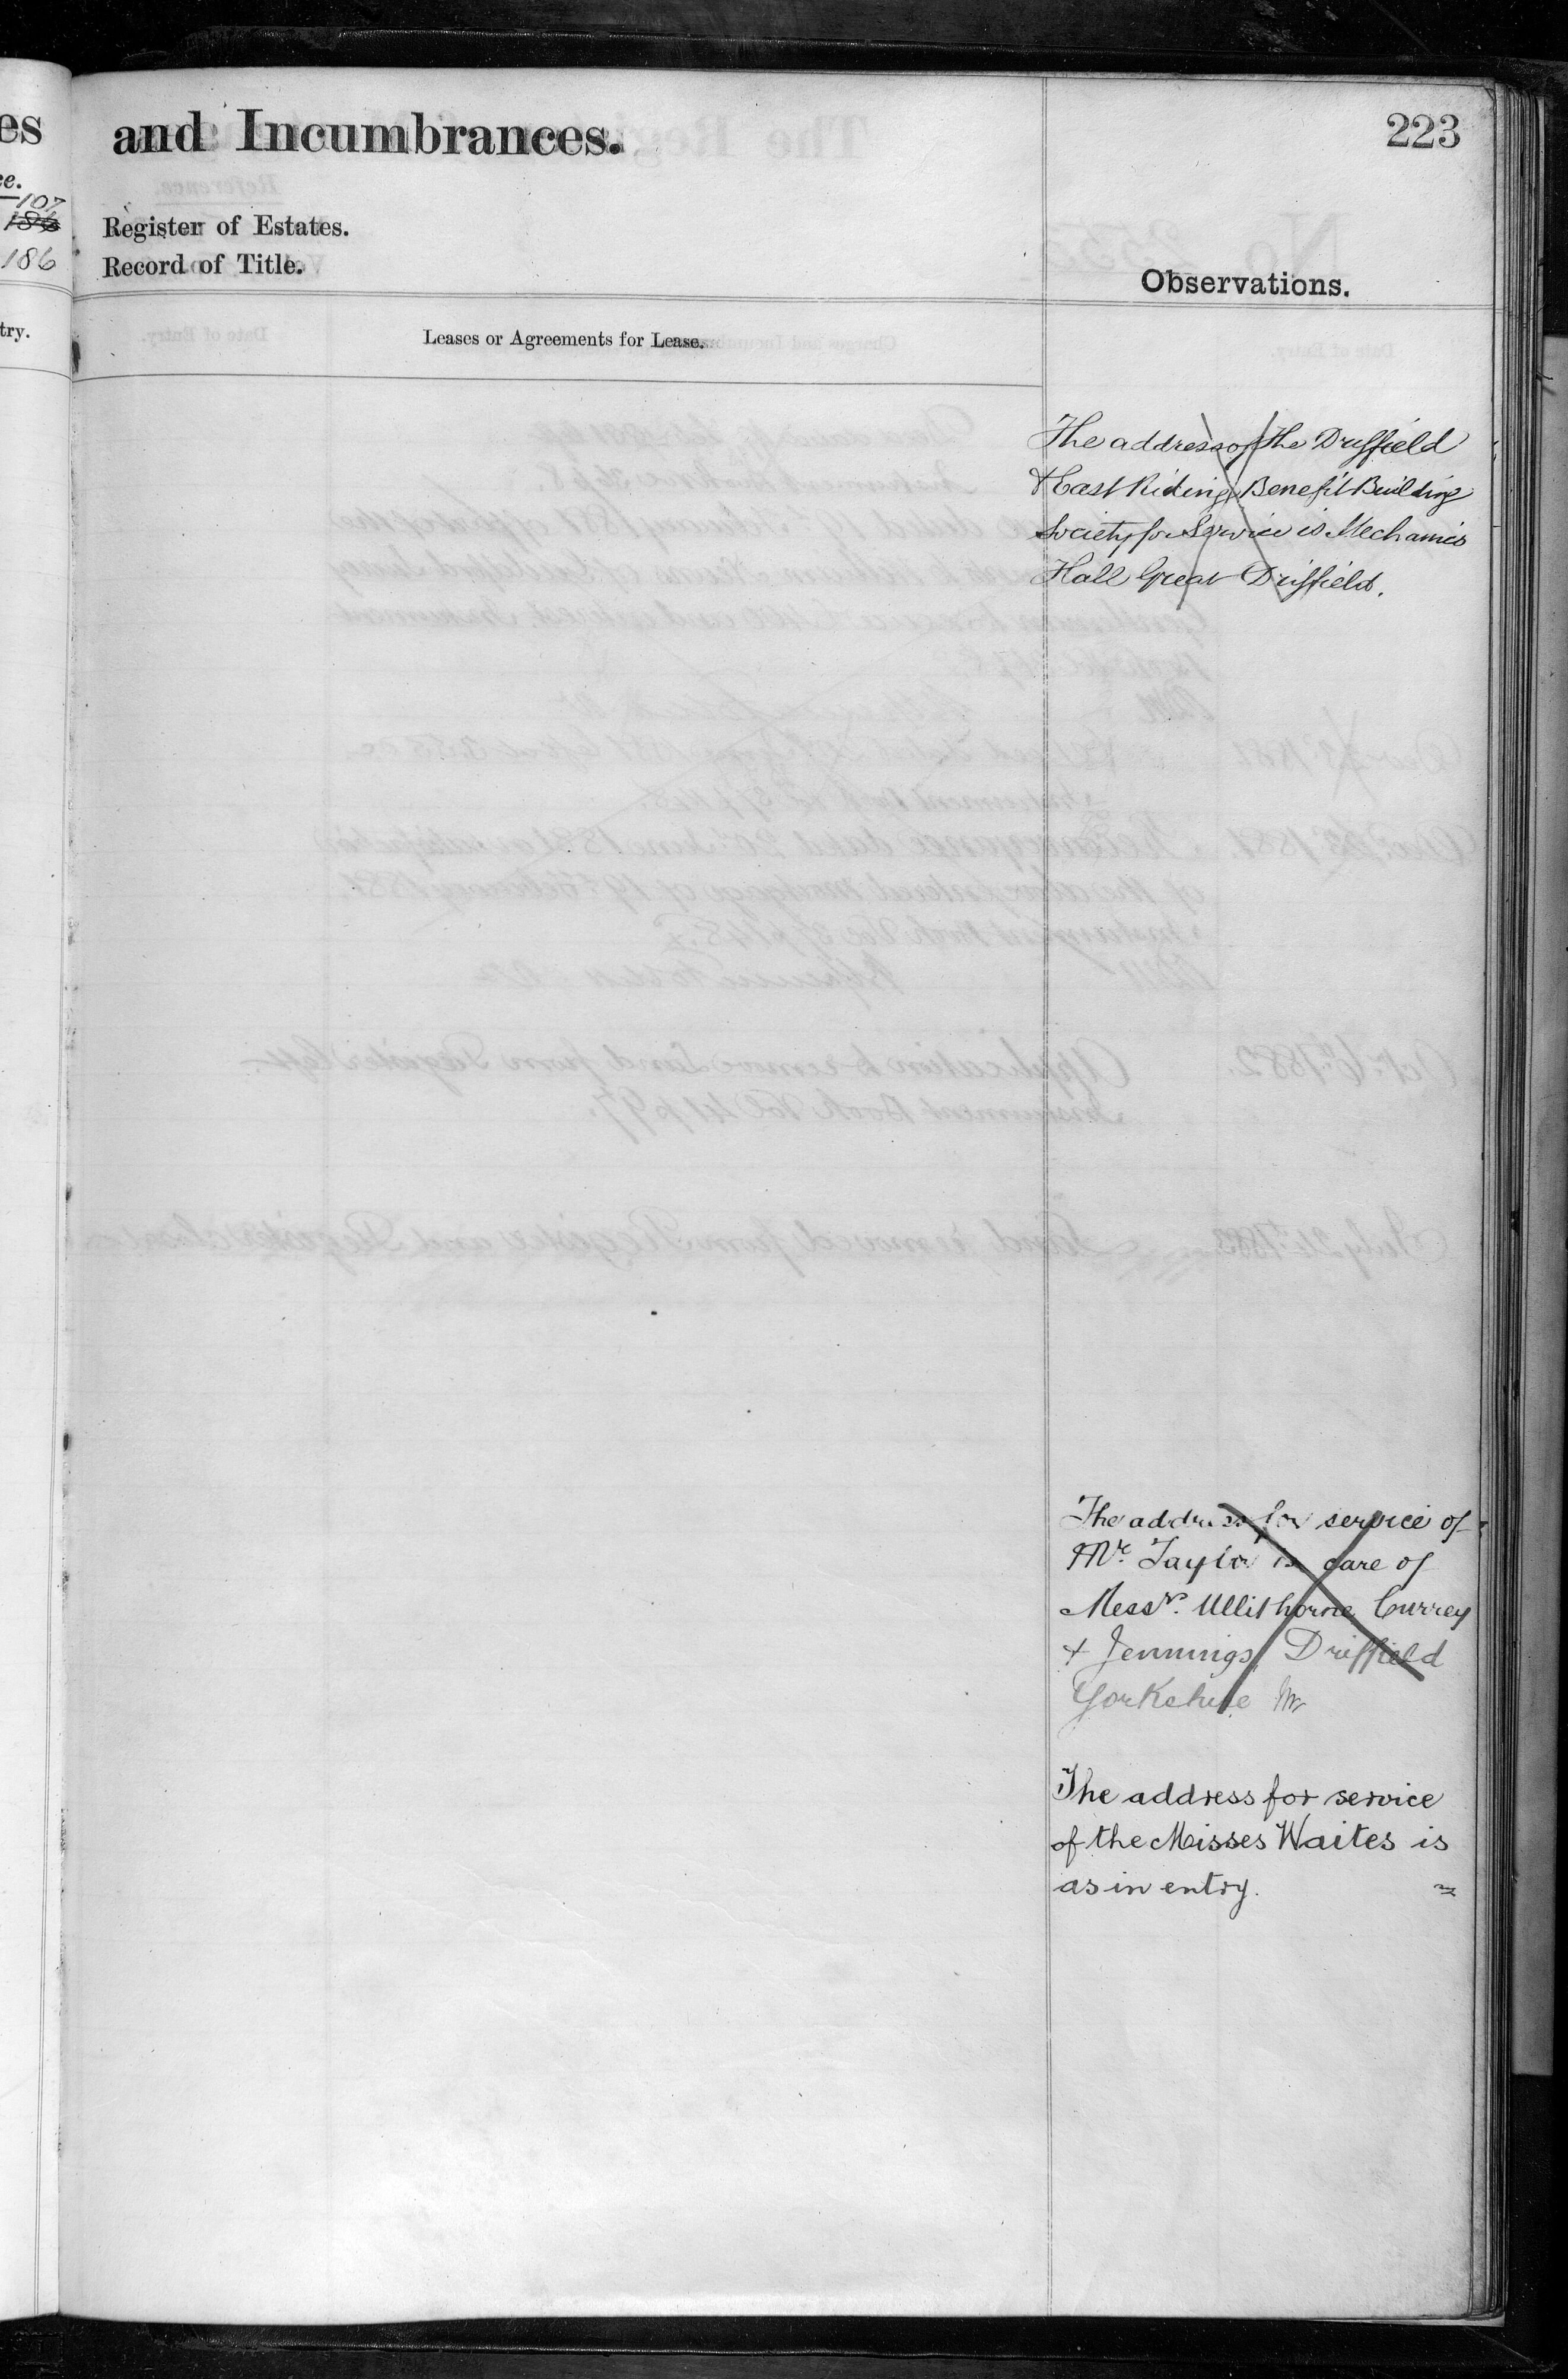 es
ce.
107
186
186
try.
and Incumbrances.
223
Register of Estates.
Record of Title.
Observations.
Leases or Agreements for Lease.
The address of the Driffield
& East Riding Benefit Building
Society for Service is Mechanics
Hall Great Driffield.
The address for service of
Mr. Taylor is care of
Messrs. Ullithorne Currey
& Jennings Driffield
Yorkshire
The address for service
of the Misses Waites is
as in entry.